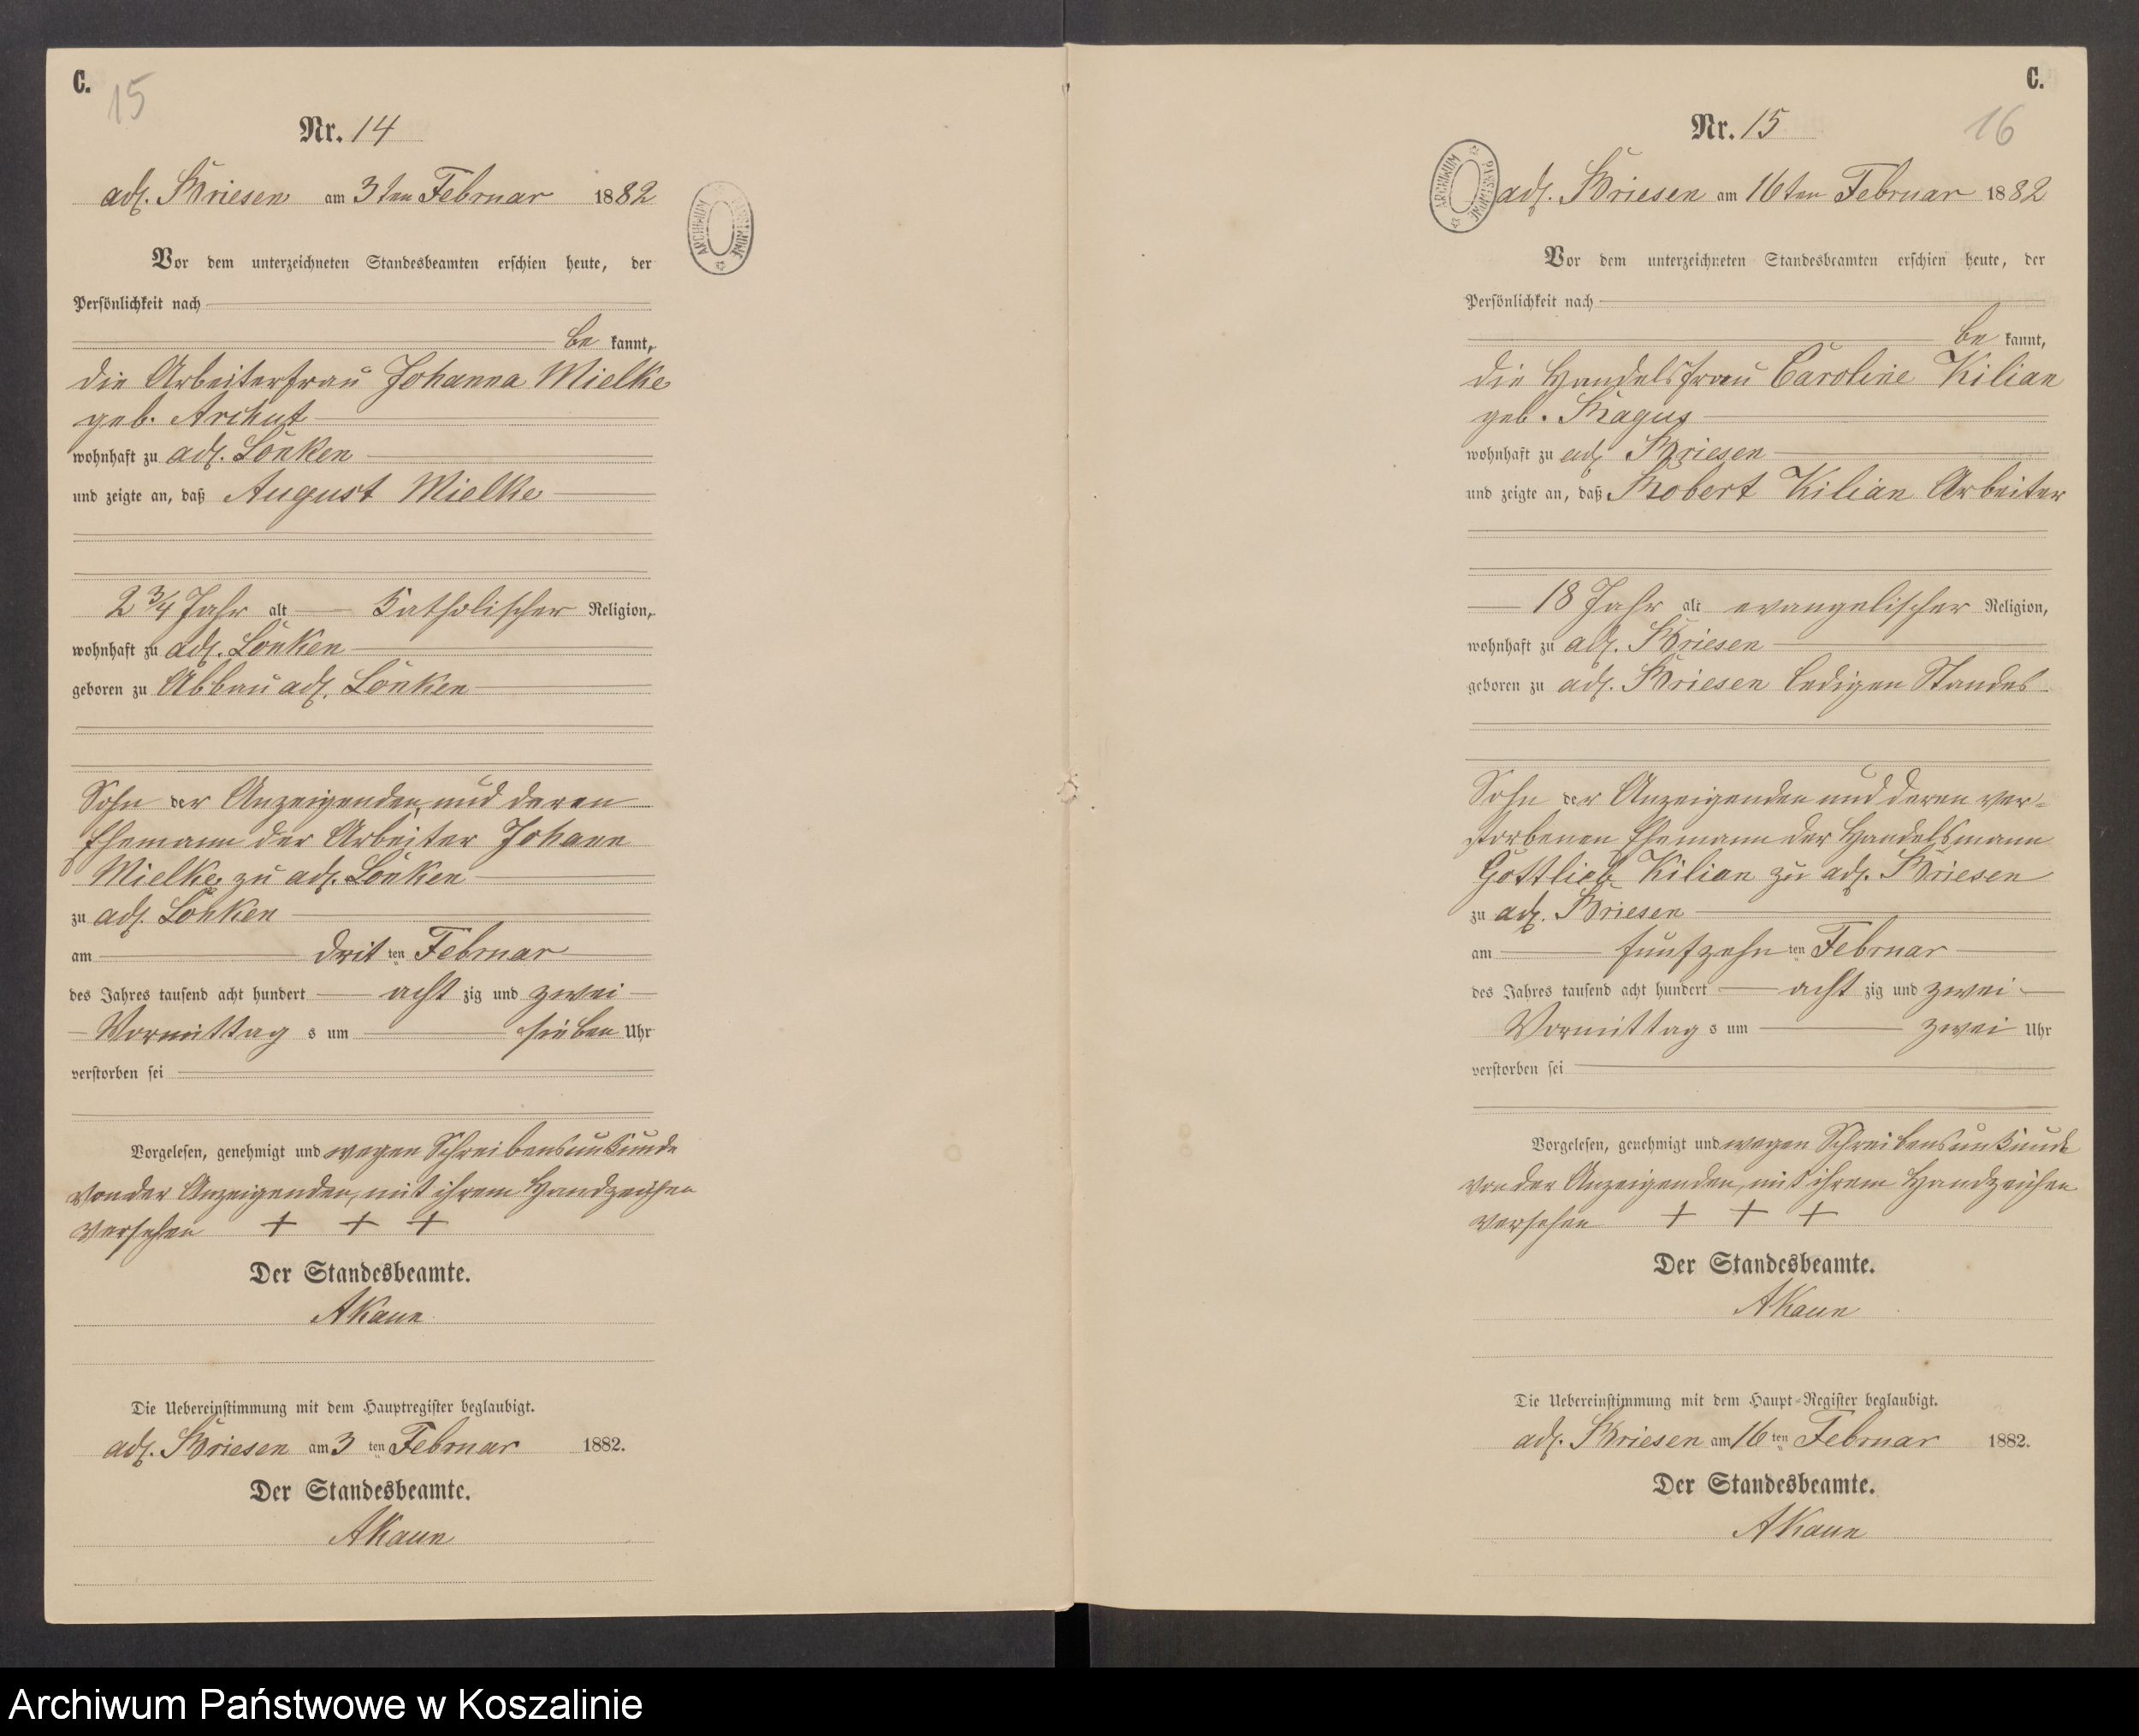 C.
15
Nr. 14
adl. Briesen am 3ten Februar 1882
Vor dem unterzeichneten Standesbeamten erschien heute, der
Persönlichkeit nach
be kannt,
die Arbeiterfrau Johanna Mielke
geb. Archut
wohnhaft zu adl. Lonken
und zeigte an, daß August Mielke
2 3/4 Jahr alt Katholischer Religion,
wohnhaft zu adl. Lonken
geboren zu Abbau adl. Lonken
Sohn der Anzeigenden, und deren
Ehemann der Arbeiter Johann
Mielke zu adl. Lonken
zu adl. Lonken
am drit ten Februar
des Jahres tausend acht hundert acht zig und zwei
Vormittag s um sieben Uhr
verstorben sei
Vorgelesen, genehmigt und wegen Schreibensunkunde
von der Anzeigenden, mit ihrem Handzeichen
versehen + + +
Der Standesbeamte.
AKaun
Die Uebereinstimmung mit dem Hauptregister beglaubigt.
adl. Briesen am 3 ten Februar 1882.
Der Standesbeamte.
AKaun
ARCHIWUM PAŃSTWOWE
C.
16
Nr. 15
ARCHIWUM PAŃSTWOWE
adl. Briesen am 16ten Februar 1882
Vor dem unterzeichneten Standesbeamten erschien heute, der
Persönlichkeit nach
be kannt,
die Handelsfrau Caroline Kilian
geb. Ragus
wohnhaft zu adl. Briesen
und zeigte an, daß Robert Kilian Arbeiter
18 Jahr alt evangelischer Religion,
wohnhaft zu adl. Briesen
geboren zu adl. Briesen ledigen Standes
Sohn der Anzeigenden und deren ver-
storbenen Ehemann der Handelsmann
Gottlieb Kilian zu adl. Briesen
zu adl. Briesen
am fünfzehn ten Februar
des Jahres tausend acht hundert acht zig und zwei
Vormittag s um zwei Uhr
verstorben sei
Vorgelesen, genehmigt und wegen Schreibensunkunde
von der Anzeigenden, mit ihrem Handzeichen
versehen + + +
Der Standesbeamte.
AKaun
Die Uebereinstimmung mit dem Haupt-Register beglaubigt.
adl. Briesen am 16 ten Februar 1882.
Der Standesbeamte.
AKaun
Archiwum Państwowe w Koszalinie